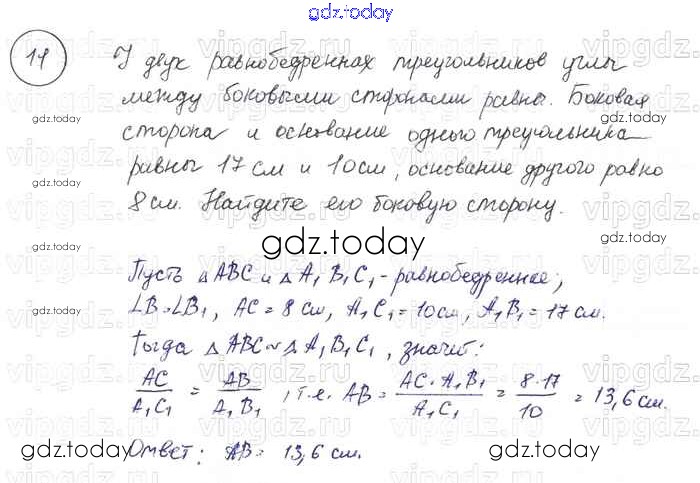 gdz.today
11 У двух равнобедренных треугольников углы
между боковыми сторонами равны. Боковая
сторона и основание одного треугольника
равны 17 см и 10 см, основание другого равно
8 см. Найдите его боковую сторону.
gdz.today
Пусть △ABC и △A₁B₁C₁ - равнобедренные,
∠B=∠B₁, AC = 8 см, A₁C₁ = 10 см, A₁B₁ = 17 см.
Тогда △ABC ~ △A₁B₁C₁, значит:
AC/A₁C₁ = AB/A₁B₁, т.е. AB = AC·A₁B₁/A₁C₁ = 8·17/10 = 13,6 см.
Ответ: AB = 13,6 см.